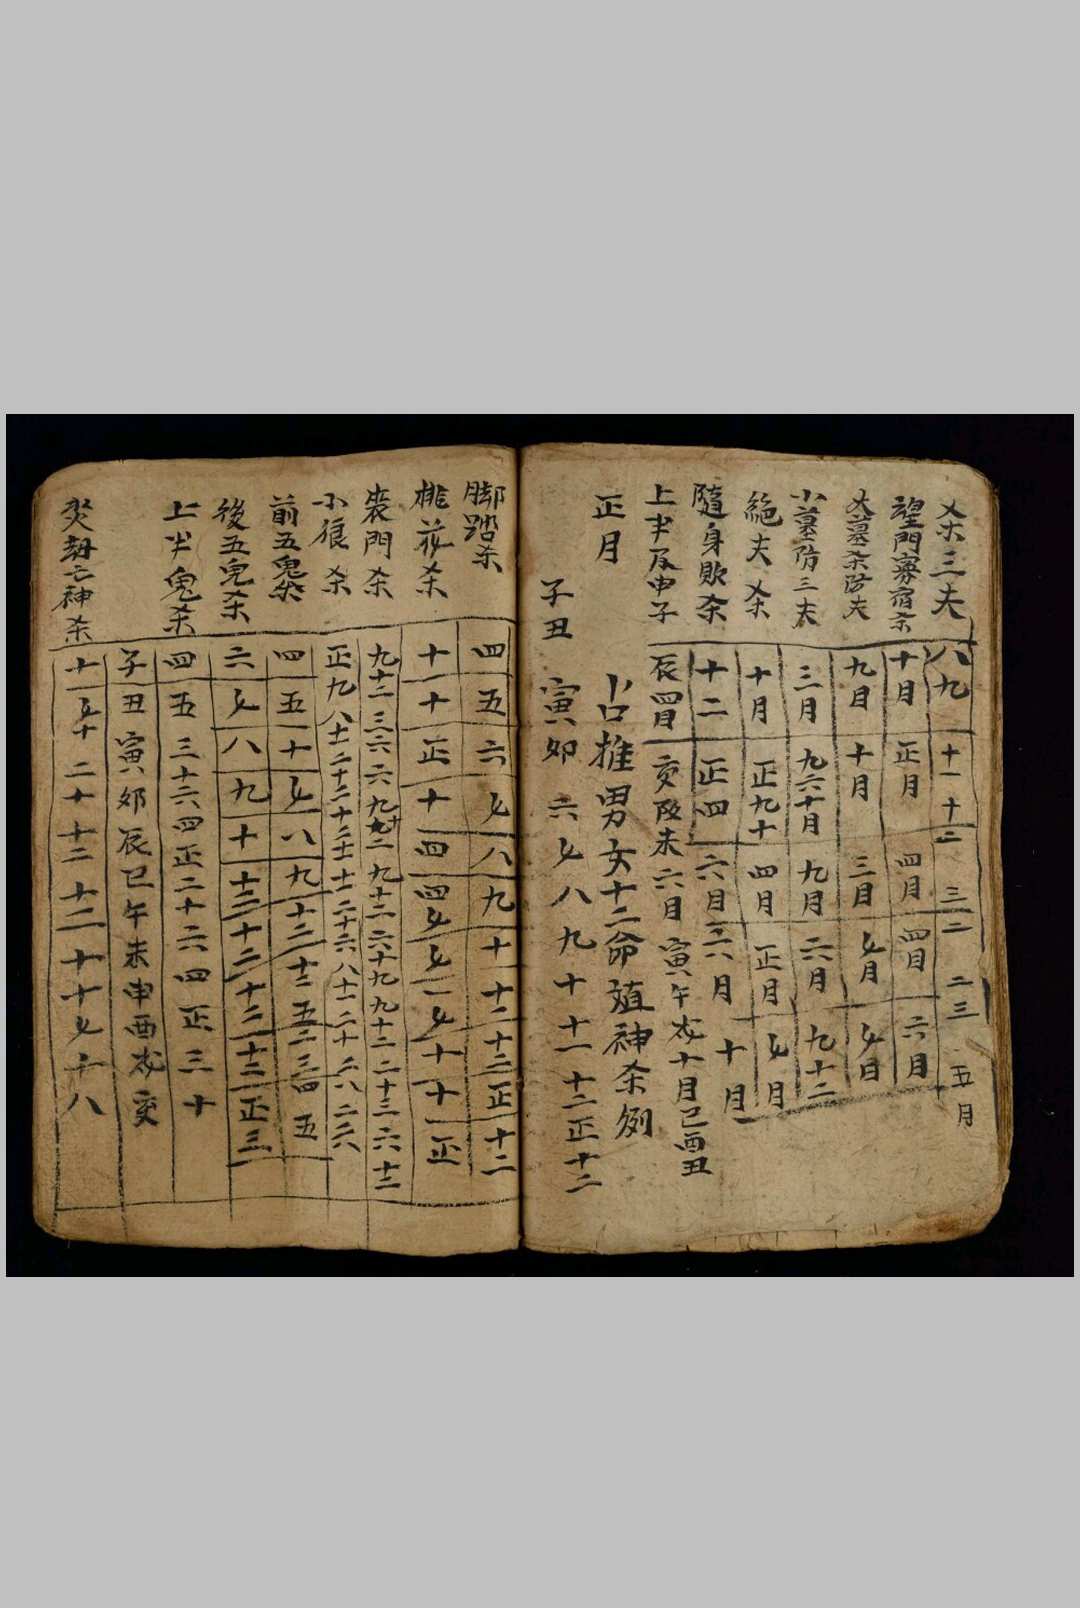 杀三夫 八九 十一 十二 三二 二三 五月
望門寡宿杀 十月 正月 四月 四月 六月
大墓杀防夫 九月 十月 三月 七月 七月
小墓防三夫 三月 九六十月 九月 六月 九十二
絶夫杀 十月 正九十 四月 正月 七月
隨身敗杀 十二 正四 六月 二六月 十月
上半及申子 辰四月 亥卯未六月 寅午戌十月巳酉丑
正月 占推男女十二命殖神杀例
子丑 寅卯 六七八九十十一十二正十二
脚踏杀 四五六七八九十十二十二正十二
桃花杀 十十正十四四七七一七十十一正
喪門杀
小狼杀
前五鬼杀 四五十七八九十二十二五二三四五
後五鬼杀 六七八九十十二十二十二十三正三
上半鬼杀 四五三十六四正二十六四正三十
子丑寅卯辰巳午未申酉戌亥
劫亡神杀 十七十二十十二十二十十七十八